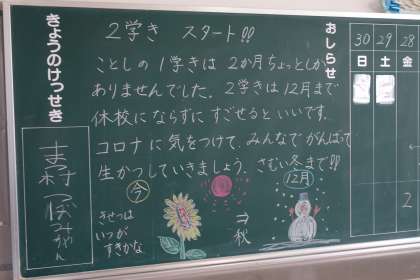 きょうのけっせき
2学き スタート!!
ことしの1学きは2か月ちょっとしか
ありませんでした。2学きは12月まで
休校にならずにすごせるといいです。
コロナに気をつけて、みんなでがんばって
生かつしていきましょう。さむい冬まで!!
今
12月
きせつは
いつが
すきかな
⇒
秋
おしらせ
30 29 28
日 土 金
2